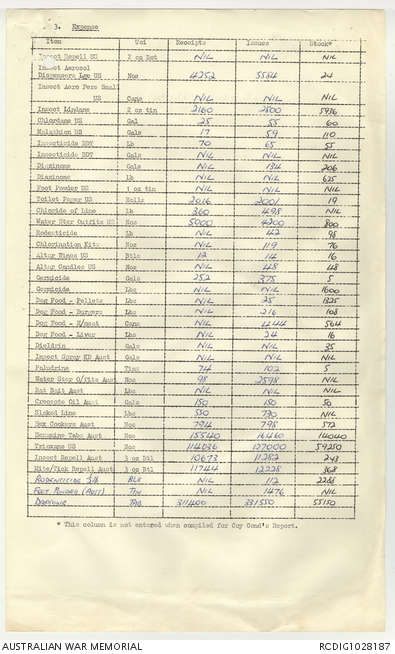 3. Expense
Item Uoi Receipts Issues Stock*
Insect Repell US 2 oz Bot NIL NIL NIL
Insect Aerosol
Dispensers Lge US Nos 4252 5584 24
Insect Aero Pers Small
US Cans NIL NIL NIL
Insect Lindane 2 oz tin 2160 2800 5976
Chlordane US Gal 25 55 60
Malathion US Gals 17 59 110
Insecticide DDT Lb 70 65 55
Insecticide DDT Gals NIL NIL NIL
Diazinone Gals NIL 134 206
Diazinone Lb NIL NIL 625
Foot Powder US 1 oz tin NIL NIL NIL
Toilet Paper US Rolls 2016 2001 19
Chloride of Lime Lb 360 498 NIL
Water Ster Outfits US Nos 5000 4200 800
Rodenticide Lb NIL 42 98
Chlorination Kits Nos NIL 119 76
Altar Wines US Btls 12 14 16
Altar Candles US Nos NIL 48 48
Germicide Gals 252 375 5
Germicide Lbs NIL NIL 1600
Dog Food - Pellets Lbs NIL 25 1325
Dog Food - Burgers Lbs NIL 216 108
Dog Food - H/meat Cans NIL 1244 564
Dog Food - Liver Lbs NIL 24 16
Dieldrin Gals NIL NIL 35
Insect Spray KD Aust Gals NIL NIL NIL
Paludrine Tins 74 102 5
Water Ster O/Fits Aust Nos 98 2598 NIL
Rat Bait Aust Lbs NIL NIL NIL
Creosote Oil Aust Gals 150 150 50
Slaked Lime Lbs 550 790 NIL
Hex Cookers Aust Nos 794 798 572
Hexamine Tabs Aust Nos 15540 16460 14040
Trioxane US Nos 114036 127000 59250
Insect Repell Aust 3 oz Btl 10673 11282 243
Mite/Tick Repell Aust 3 oz Btl 11744 12228 368
RODENTICIDE NIL 112 2288
FOOT POWDER (AUST) TIN NIL 1476 NIL
DAPSONE TAB 311400 331550 55150
* This column is not entered when compiled for Guy Comd's Report.
AUSTRALIAN WAR MEMORIAL RCDIG1028187